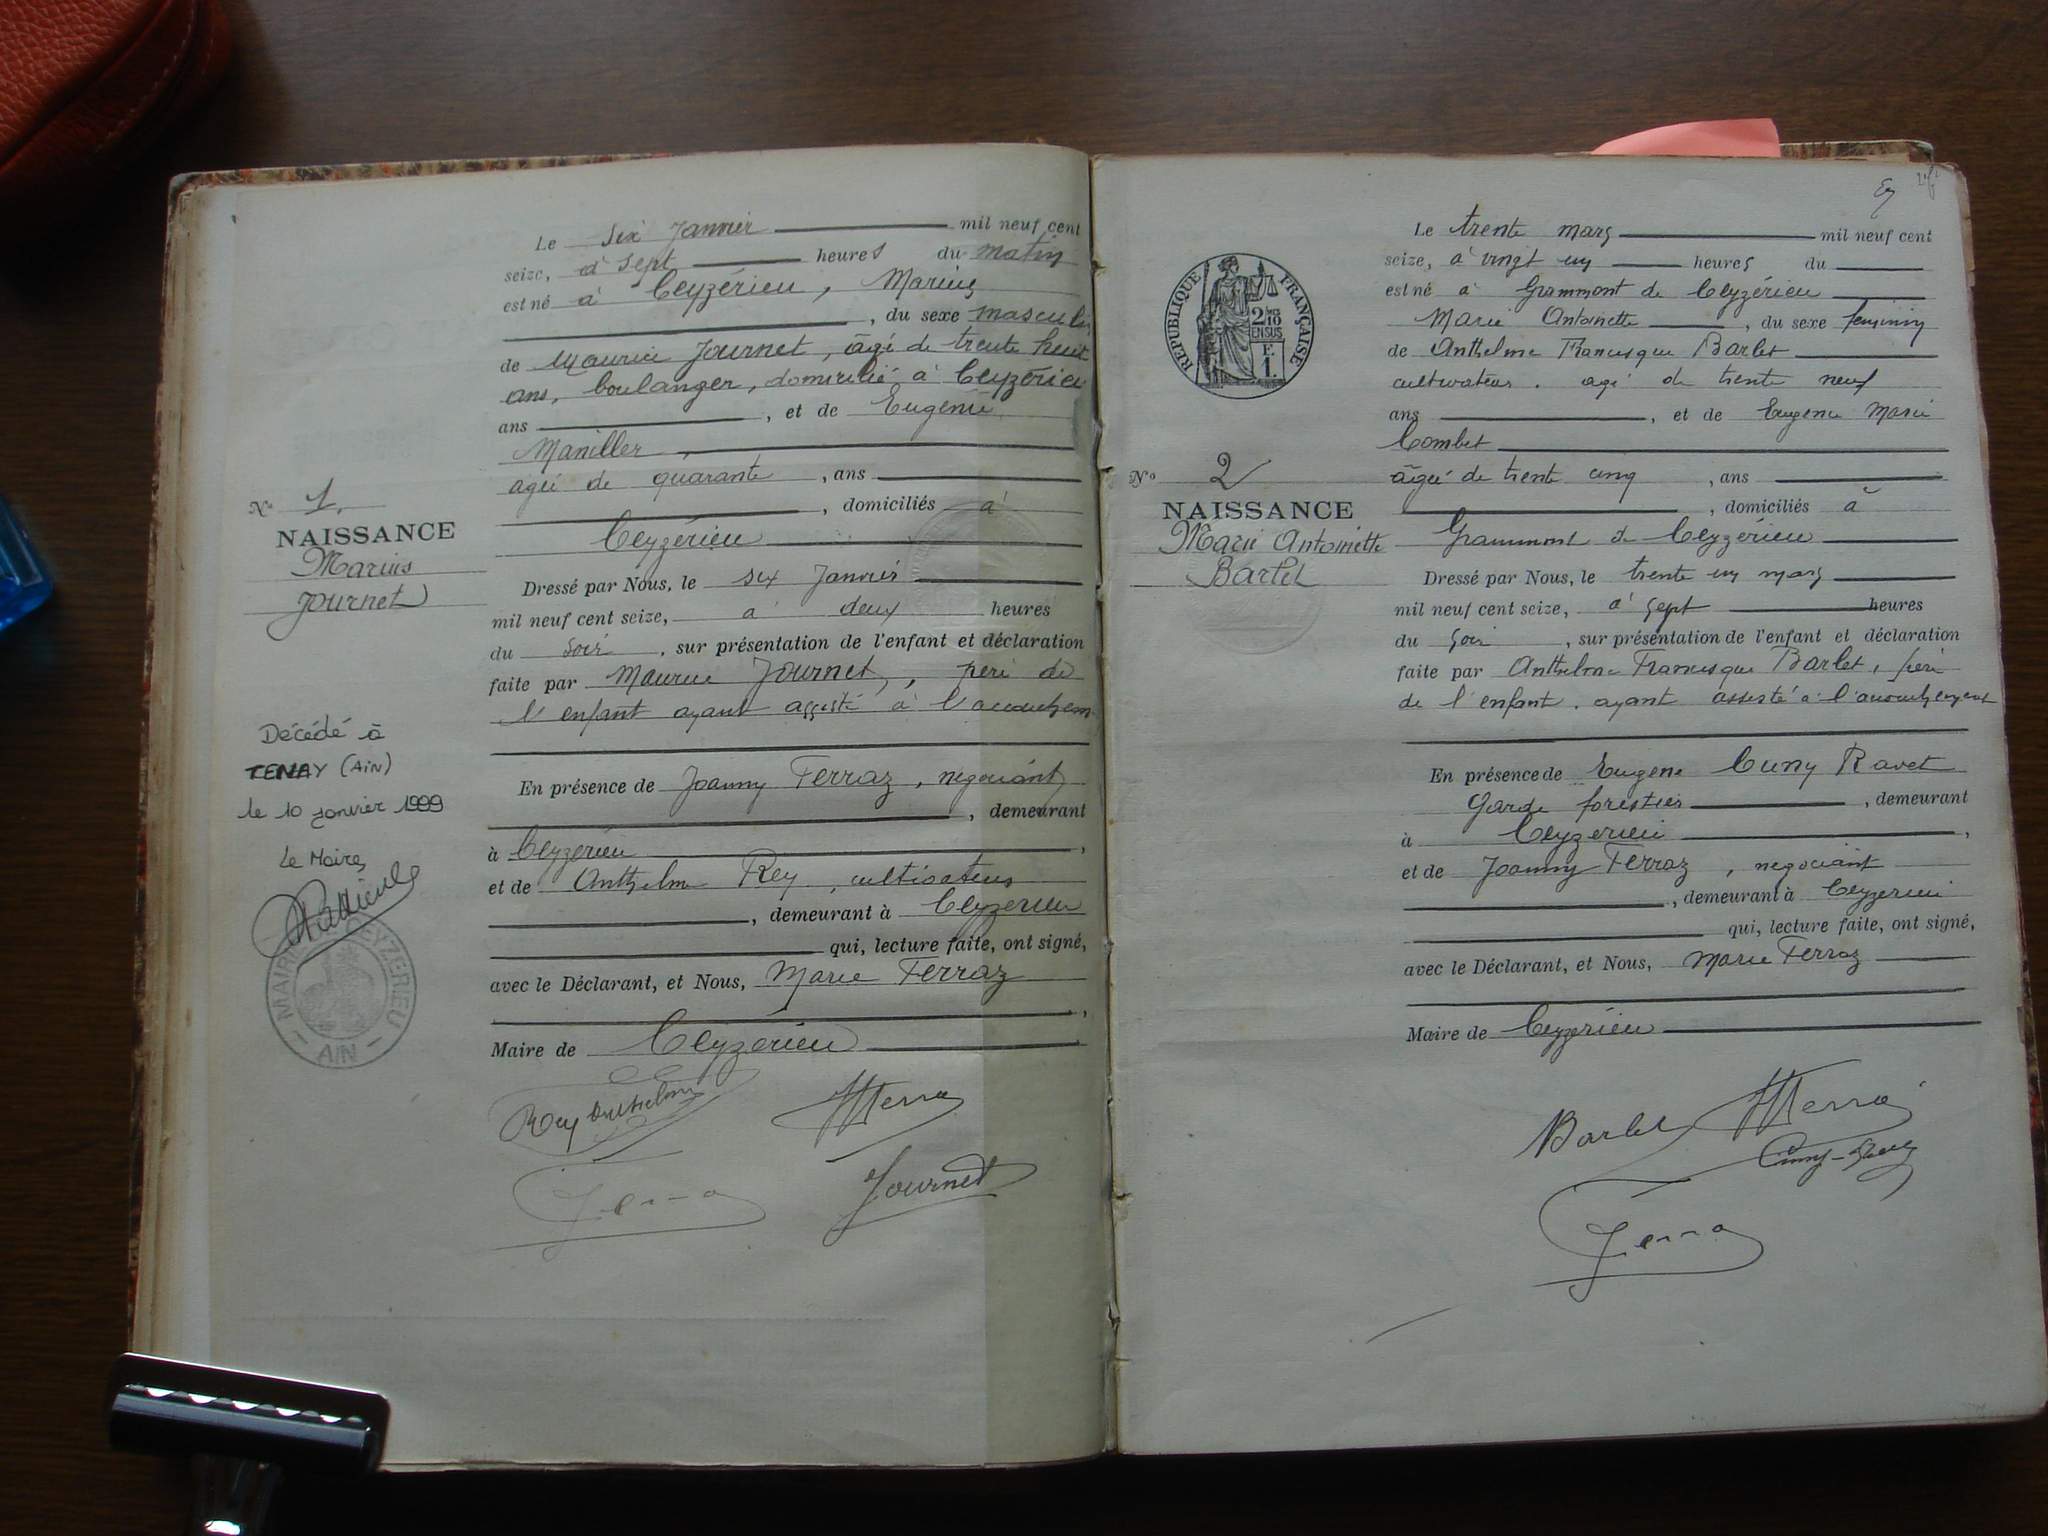 Le six Janvier mil neuf cent
seize, à sept heures du matin
est né à Ceyzérieu, Marius
, du sexe masculin
de Maurice Journet, âgé de trente huit
ans, boulanger, domicilié à Ceyzérieu
ans , et de Eugénie
Maniller,
agée de quarante , ans
, domiciliés à
Ceyzérieu
Nº 1.
NAISSANCE
Marius
Journet
Dressé par Nous, le six Janvier
mil neuf cent seize, à deux heures
du soir , sur présentation de l'enfant et déclaration
faite par Maurice Journet, père de
l'enfant ayant assisté à l'accouchem
En présence de Joanny Ferraz, négociant
, demeurant
à Ceyzérieu ,
et de Anthelme Rey, cultivateur
, demeurant à Ceyzerieu
qui, lecture faite, ont signé,
avec le Déclarant, et Nous, Marie Ferraz
,
Maire de Ceyzérieu
Décédé à
TENAY (AIN)
le 10 janvier 1999
Le Maire,
MAIRIE CEYZERIEU
- AIN -
Rey Anthelme
Ferra
Journet
Ferra
Le trente mars mil neuf cent
seize, à vingt un heures du
est né à Grammont de Ceyzérieu
Marie Antoinette , du sexe feminin
de Anthelme Francisque Barlet
cultivateur. agé de trente neuf
ans , et de Eugenie Marie
Combet
âgée de trente cinq , ans
, domiciliés à
Grammont de Ceyzérieu
RÉPUBLIQUE FRANÇAISE
2/10
EN SUS
F.
1.
Nº 2
NAISSANCE
Marie Antoinette
Barlet
Dressé par Nous, le trente un mars
mil neuf cent seize, à sept heures
du soir , sur présentation de l'enfant et déclaration
faite par Anthelme Francisque Barlet, père
de l'enfant. ayant assisté à l'accouchement
En présence de Eugene Cuny Ravet
Garde forestier , demeurant
à Ceyzerieu ,
et de Joanny Ferraz, negociant
, demeurant à Ceyzerieu
qui, lecture faite, ont signé,
avec le Déclarant, et Nous, Marie Ferraz
Maire de Ceyzérieu
Barlet
Ferra
Cuny-Ravet
Ferra